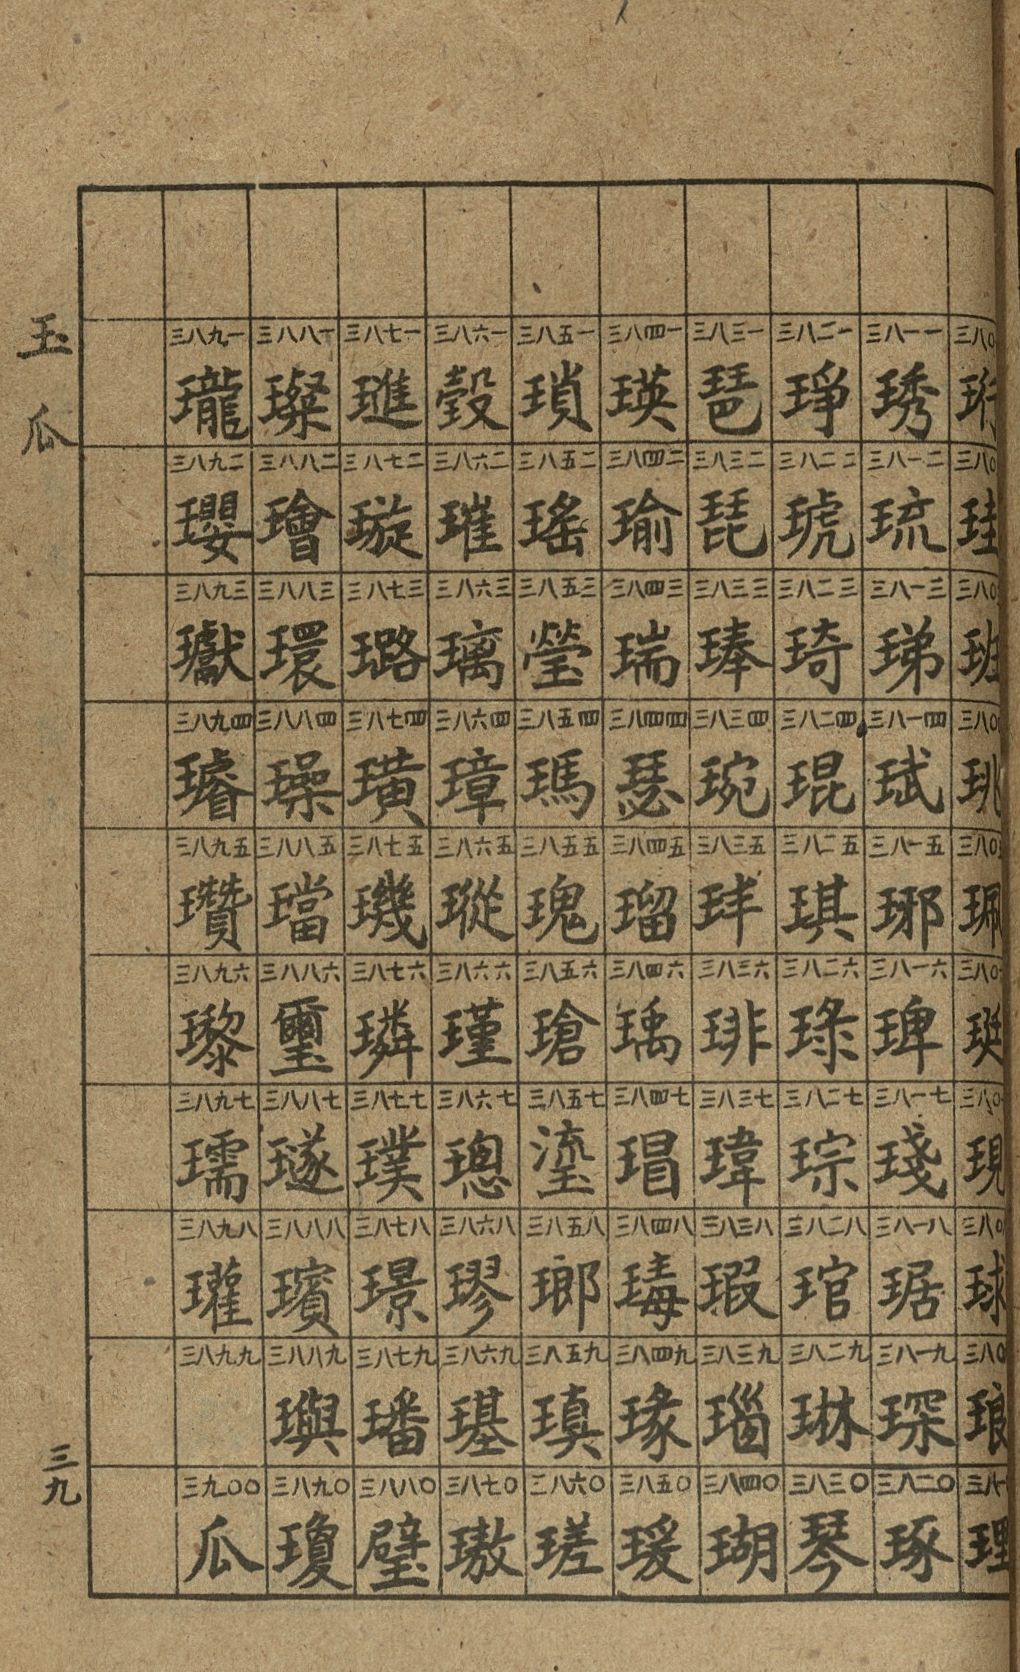 三八〇 珩 三八〇 珪 三八〇 班 三八〇 珧 三八〇 珮 三八〇 珽 三八〇 現 三八〇 球 三八〇 琅 三八一 理
三八一一 琇 三八一二 琉 三八一三 珶 三八一四 珷 三八一五 琊 三八一六 琕 三八一七 琖 三八一八 琚 三八一九 琛 三八二〇 琢
三八二一 琤 三八二二 琥 三八二三 琦 三八二四 琨 三八二五 琪 三八二六 琭 三八二七 琮 三八二八 琯 三八二九 琳 三八三〇 琴
三八三一 琶 三八三二 琵 三八三三 琫 三八三四 琬 三八三五 玤 三八三六 琲 三八三七 瑋 三八三八 瑕 三八三九 瑙 三八四〇 瑚
三八四一 瑛 三八四二 瑜 三八四三 瑞 三八四四 瑟 三八四五 瑠 三八四六 瑀 三八四七 瑁 三八四八 瑇 三八四九 瑑 三八五〇 瑗
三八五一 瑣 三八五二 瑤 三八五三 瑩 三八五四 瑪 三八五五 瑰 三八五六 瑲 三八五七 瑬 三八五八 瑯 三八五九 瑱 二八六〇 瑳
三八六一 瑴 三八六二 璀 三八六三 璃 三八六四 璋 三八六五 瑽 三八六六 瑾 三八六七 璁 三八六八 璆 三八六九 璂 三八七〇 璈
三八七一 璡 三八七二 璇 三八七三 璐 三八七四 璜 三八七五 璣 三八七六 璘 三八七七 璞 三八七八 璟 三八七九 璠 三八八〇 璧
三八八一 璨 三八八二 璯 三八八三 環 三八八四 璪 三八八五 璫 三八八六 璽 三八八七 璲 三八八八 璸 三八八九 璵 三八九〇 瓊
三八九一 瓏 三八九二 瓔 三八九三 瓛 三八九四 璿 三八九五 瓚 三八九六 瓈 三八九七 瓀 三八九八 瓘 三八九九 三九〇〇 瓜
玉 瓜
三九